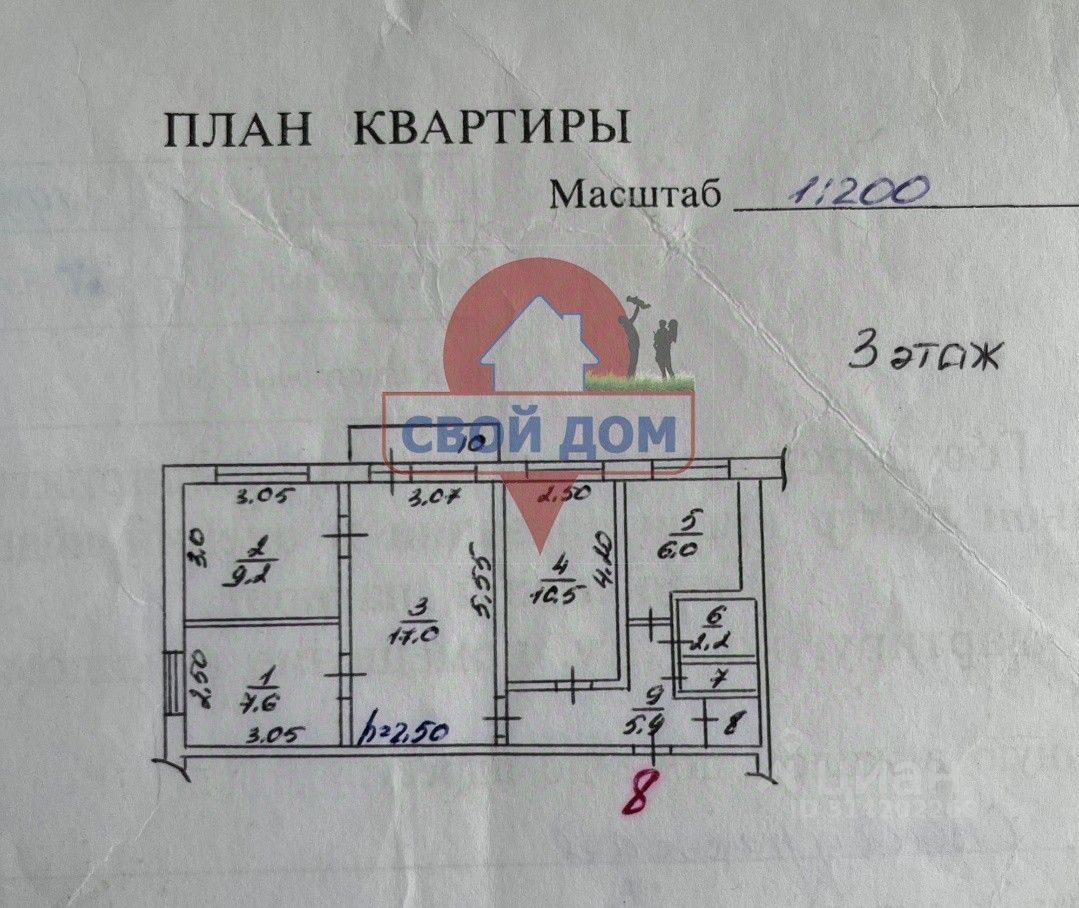 ПЛАН КВАРТИРЫ
Масштаб 1:200
3 этаж
СВОЙ ДОМ
10
3.05
3.07
2.50
3.0
2
9.2
5.55
3
17.0
4
10.5
4.20
5
6.0
6
2.2
7
2.50
1
7.6
3.05
h=2.50
9
5.9
8
8
циан